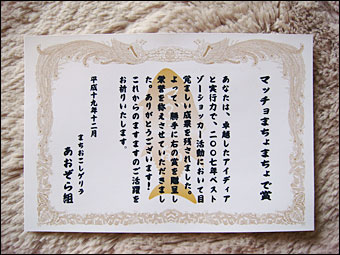 マッチョまちょまちょで賞
あなたは、卓越したアイディア
と実行力で、二〇〇七年ベスト
ゾーショッカー活動において目
覚ましい成果を残されました。
よって、勝手に右の賞を贈呈し
栄誉を称えさせていただきまし
た。ありがとうございます!
これからのますますのご活躍を
お祈りいたします。
平成十九年十二月
まちおこしゲリラ
あおぞら組